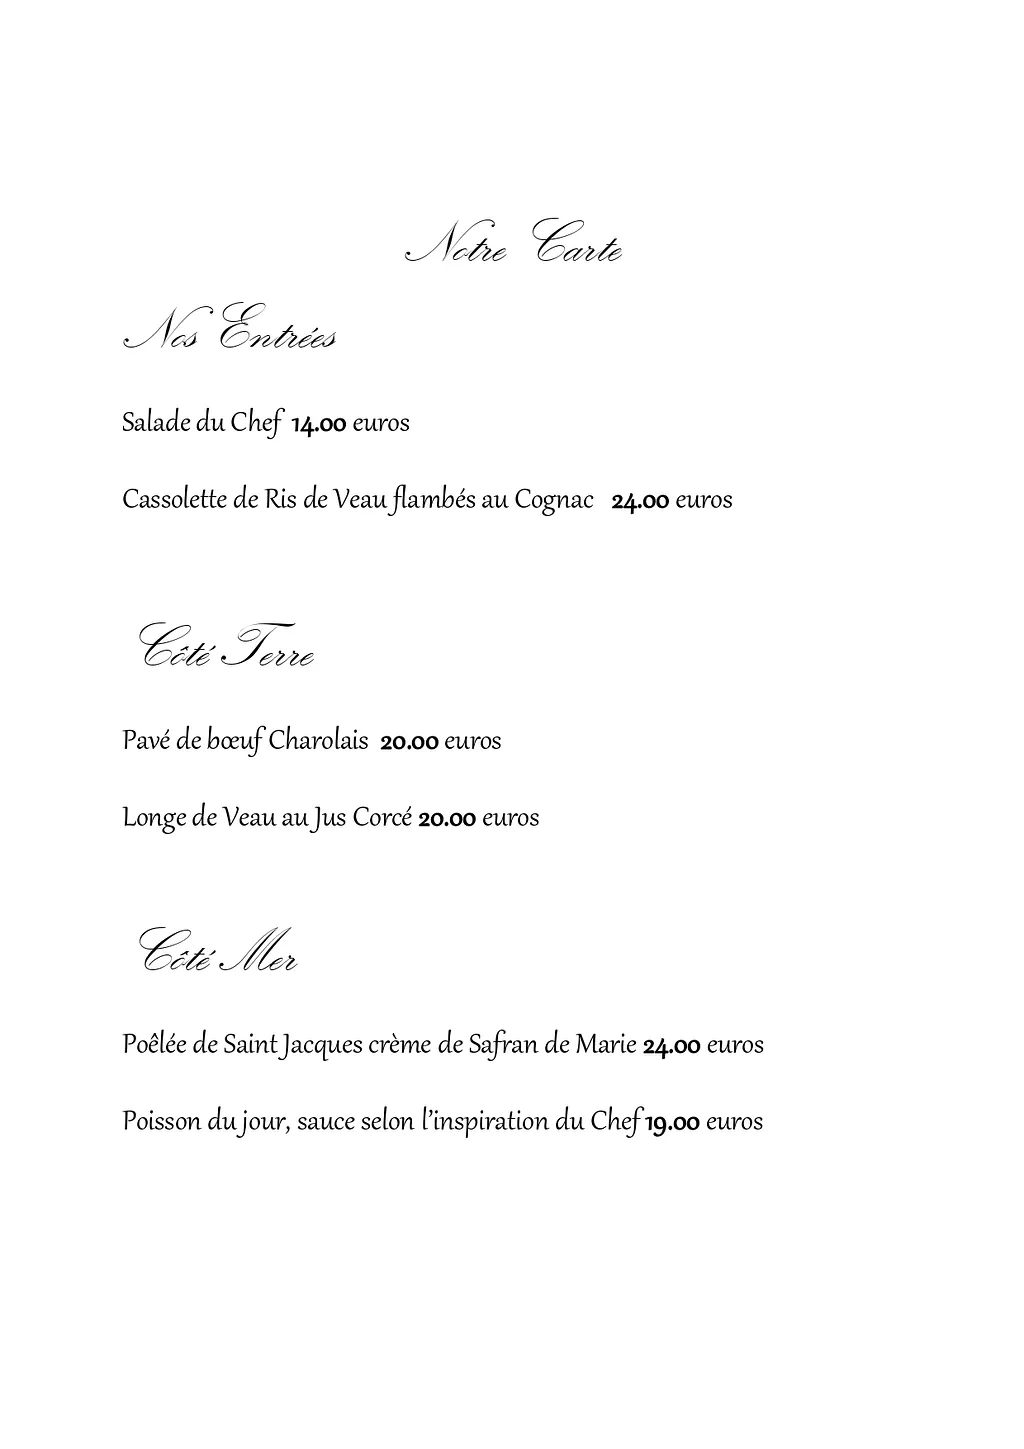 Notre Carte
Nos Entrées
Salade du Chef 14.00 euros
Cassolette de Ris de Veau flambés au Cognac 24.00 euros
Côté Terre
Pavé de bœuf Charolais 20.00 euros
Longe de Veau au Jus Corcé 20.00 euros
Côté Mer
Poêlée de Saint Jacques crème de Safran de Marie 24.00 euros
Poisson du jour, sauce selon l’inspiration du Chef 19.00 euros